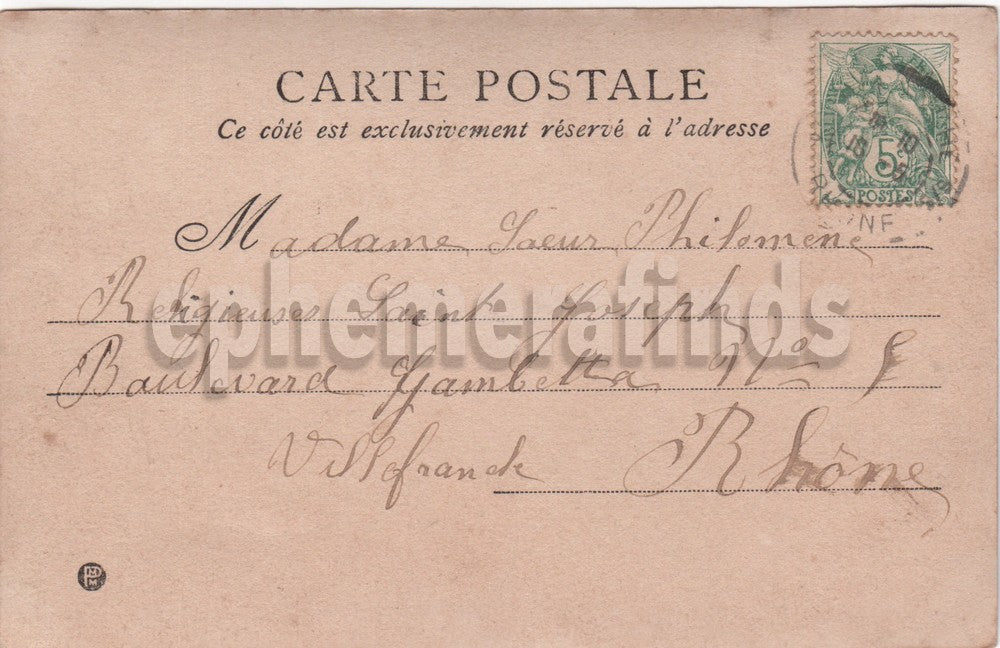 CARTE POSTALE
Ce côté est exclusivement réservé à l'adresse
5
POSTES
Madame Sœur Philomène
Religieuses Saint Joseph
Boulevard Gambetta No
Villefranche Rhône
ephemerafinds